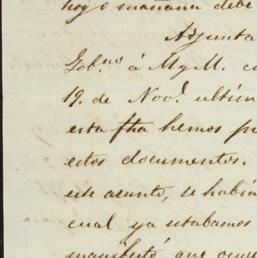 hoy o mañana debe
Adjunta
Gob.ⁿᵒ á M y M. c
19. de Nov.ᵉ últim
esta fha hemos p
estos documentos.
este asunto, se habia
cual ya estabamos
manifestó que